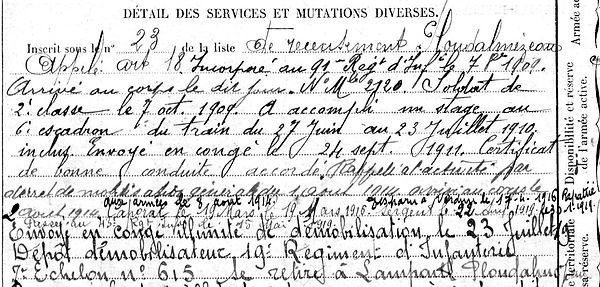 DÉTAIL DES SERVICES ET MUTATIONS DIVERSES.
Inscrit sous le n° 23 de la liste de recensement Ploudalmézeau
Appelé art 18. Incorporé au 91e Régt d'Infie le 7 8bre 1909.
Arrivé au corps le dit jour. N° Mle 2920. Soldat de
2e classe le 7 oct. 1909. A accompli un stage au
6e escadron du train du 27 Juin au 23 Juillet 1910,
inclus. Envoyé en congé le 24 sept. 1911. Certificat
de bonne conduite accordé. Rappelé à l'activité par
décret de mobilisation générale du 1 août 1914. arrivé au corps le
août 1914. aux armées le 8 août 1914. Caporal le 19 Mars 1916. Disparu à Verdun le 17-4-1916 Rapatrié
Passé au Sergent le 22 1919.
Envoyé en congé illimité de démobilisation le 23 Juillet
Dépôt démobilisateur 19e Régiment d'Infanterie
7e Echelon n° 615 se retire à Lampaul Ploudalm
Disponibilité et réserve
de l'armée active.
Armée active
territoriale
réserve.